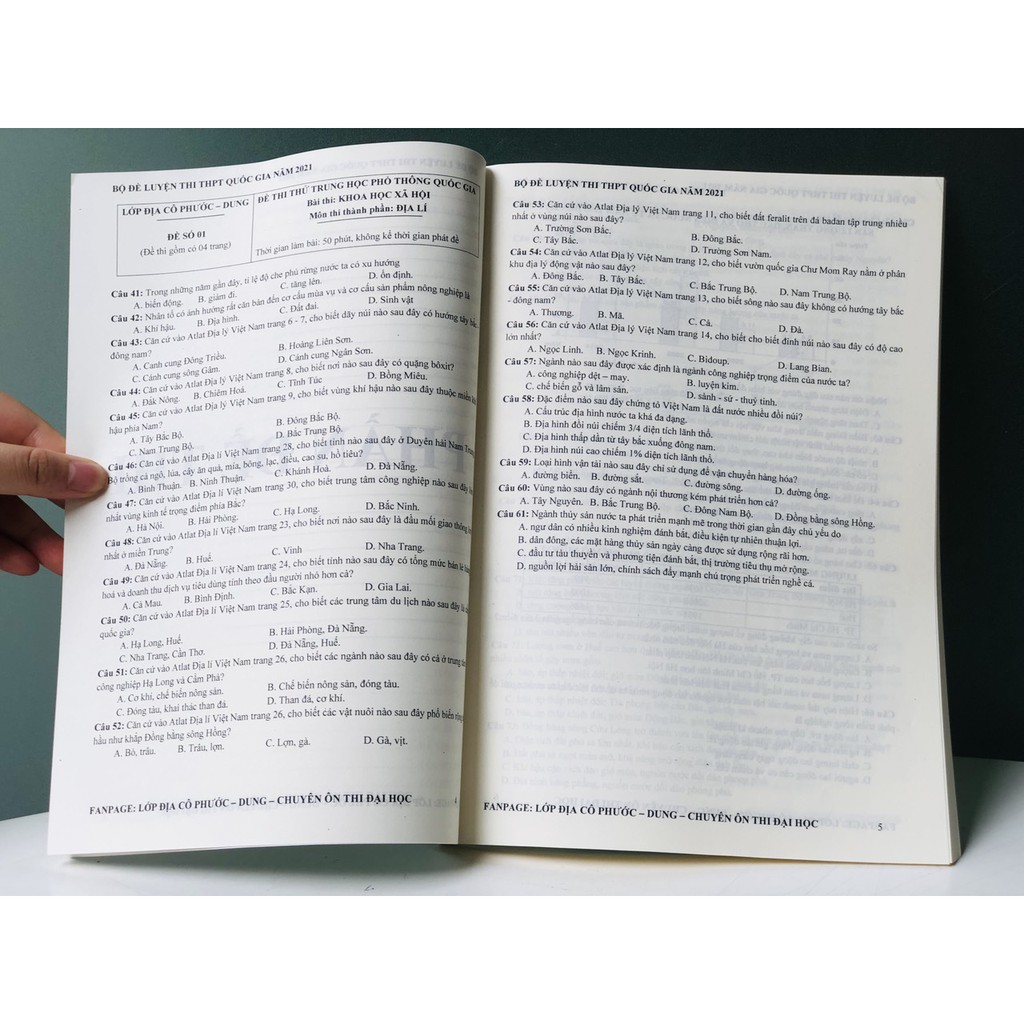 BỘ ĐỀ LUYỆN THI THPT QUỐC GIA NĂM 2021
LỚP ĐỊA CÔ PHƯỚC – DUNG
ĐỀ SỐ 01
(Đề thi gồm có 04 trang)
ĐỀ THI THỬ TRUNG HỌC PHỔ THÔNG QUỐC GIA
Bài thi: KHOA HỌC XÃ HỘI
Môn thi thành phần: ĐỊA LÍ
Thời gian làm bài: 50 phút, không kể thời gian phát đề
Câu 41: Trong những năm gần đây, tỉ lệ độ che phủ rừng nước ta có xu hướng
A. biến động. B. giảm đi. C. tăng lên. D. ổn định.
Câu 42: Nhân tố có ảnh hưởng rất căn bản đến cơ cấu mùa vụ và cơ cấu sản phẩm nông nghiệp là
A. Khí hậu. B. Địa hình. C. Đất đai. D. Sinh vật
Câu 43: Căn cứ vào Atlat Địa lý Việt Nam trang 6 - 7, cho biết dãy núi nào sau đây có hướng tây bắc
đông nam?
A. Cánh cung Đông Triều. B. Hoàng Liên Sơn.
C. Cánh cung sông Gâm. D. Cánh cung Ngân Sơn.
Câu 44: Căn cứ vào Atlat Địa lý Việt Nam trang 8, cho biết nơi nào sau đây có quặng bôxit?
A. Đăk Nông. B. Chiêm Hoá. C. Tĩnh Túc D. Bồng Miêu.
Câu 45: Căn cứ vào Atlat Địa lý Việt Nam trang 9, cho biết vùng khí hậu nào sau đây thuộc miền khí
hậu phía Nam?
A. Tây Bắc Bộ. B. Đông Bắc Bộ.
C. Nam Trung Bộ. D. Bắc Trung Bộ.
Câu 46: Căn cứ vào Atlat Địa lí Việt Nam trang 28, cho biết tỉnh nào sau đây ở Duyên hải Nam Trung
Bộ trồng cả ngô, lúa, cây ăn quả, mía, bông, lạc, điều, cao su, hồ tiêu?
A. Bình Thuận. B. Ninh Thuận. C. Khánh Hoà. D. Đà Nẵng.
Câu 47: Căn cứ vào Atlat Địa lí Việt Nam trang 30, cho biết trung tâm công nghiệp nào sau đây
nhất vùng kinh tế trọng điểm phía Bắc?
A. Hà Nội. B. Hải Phòng. C. Hạ Long. D. Bắc Ninh.
Câu 48: Căn cứ vào Atlat Địa lí Việt Nam trang 23, cho biết nơi nào sau đây là đầu mối giao thông
nhất ở miền Trung?
A. Đà Nẵng. B. Huế. C. Vinh D. Nha Trang.
Câu 49: Căn cứ vào Atlat Địa lí Việt Nam trang 24, cho biết tỉnh nào sau đây có tổng mức bán lẻ hàng
hoá và doanh thu dịch vụ tiêu dùng tính theo đầu người nhỏ hơn cả?
A. Cà Mau. B. Bình Định. C. Bắc Kạn. D. Gia Lai.
Câu 50: Căn cứ vào Atlat Địa lí Việt Nam trang 25, cho biết các trung tâm du lịch nào sau đây là
quốc gia?
A. Hạ Long, Huế. B. Hải Phòng, Đà Nẵng.
C. Nha Trang, Cần Thơ. D. Đà Nẵng, Huế.
Câu 51: Căn cứ vào Atlat Địa lí Việt Nam trang 26, cho biết các ngành nào sau đây có cả ở trung tâm
công nghiệp Hạ Long và Cẩm Phả?
A. Cơ khí, chế biến nông sản. B. Chế biến nông sản, đóng tàu.
C. Đóng tàu, khai thác than đá. D. Than đá, cơ khí.
Câu 52: Căn cứ vào Atlat Địa lí Việt Nam trang 26, cho biết các vật nuôi nào sau đây phổ biến rộng
hầu như khắp Đồng bằng sông Hồng?
A. Bò, trâu. B. Trâu, lợn. C. Lợn, gà. D. Gà, vịt.
FANPAGE: LỚP ĐỊA CÔ PHƯỚC – DUNG – CHUYÊN ÔN THI ĐẠI HỌC 4
BỘ ĐỀ LUYỆN THI THPT QUỐC GIA NĂM 2021
Câu 53: Căn cứ vào Atlat Địa lý Việt Nam trang 11, cho biết đất feralit trên đá badan tập trung nhiều
nhất ở vùng núi nào sau đây?
A. Trường Sơn Bắc. B. Đông Bắc.
C. Tây Bắc. D. Trường Sơn Nam.
Câu 54: Căn cứ vào Atlat Địa lý Việt Nam trang 12, cho biết vườn quốc gia Chư Mom Ray nằm ở phân
khu địa lý động vật nào sau đây?
A. Đông Bắc. B. Tây Bắc. C. Bắc Trung Bộ. D. Nam Trung Bộ.
Câu 55: Căn cứ vào Atlat Địa lý Việt Nam trang 13, cho biết sông nào sau đây không có hướng tây bắc
- đông nam?
A. Thương. B. Mã. C. Cả. D. Đà.
Câu 56: Căn cứ vào Atlat Địa lý Việt Nam trang 14, cho biết cho biết đỉnh núi nào sau đây có độ cao
lớn nhất?
A. Ngọc Linh. B. Ngọc Krinh. C. Bidoup. D. Lang Bian.
Câu 57: Ngành nào sau đây được xác định là ngành công nghiệp trọng điểm của nước ta?
A. công nghiệp dệt – may. B. luyện kim.
C. chế biến gỗ và lâm sản. D. sành - sứ - thuỷ tinh.
Câu 58: Đặc điểm nào sau đây chứng tỏ Việt Nam là đất nước nhiều đồi núi?
A. Cấu trúc địa hình nước ta khá đa dạng.
B. Địa hình đồi núi chiếm 3/4 diện tích lãnh thổ.
C. Địa hình thấp dần từ tây bắc xuống đông nam.
D. Địa hình núi cao chiếm 1% diện tích lãnh thổ.
Câu 59: Loại hình vận tải nào sau đây chỉ sử dụng để vận chuyển hàng hóa?
A. đường biển. B. đường sắt. C. đường sông. D. đường ống.
Câu 60: Vùng nào sau đây có ngành nội thương kém phát triển hơn cả?
A. Tây Nguyên. B. Bắc Trung Bộ. C. Đông Nam Bộ. D. Đồng bằng sông Hồng.
Câu 61: Ngành thủy sản nước ta phát triển mạnh mẽ trong thời gian gần đây chủ yếu do
A. ngư dân có nhiều kinh nghiệm đánh bắt, điều kiện tự nhiên thuận lợi.
B. dân đông, các mặt hàng thủy sản ngày càng được sử dụng rộng rãi hơn.
C. đầu tư tàu thuyền và phương tiện đánh bắt, thị trường tiêu thụ mở rộng.
D. nguồn lợi hải sản lớn, chính sách đẩy mạnh chú trọng phát triển nghề cá.
FANPAGE: LỚP ĐỊA CÔ PHƯỚC – DUNG – CHUYÊN ÔN THI ĐẠI HỌC 5